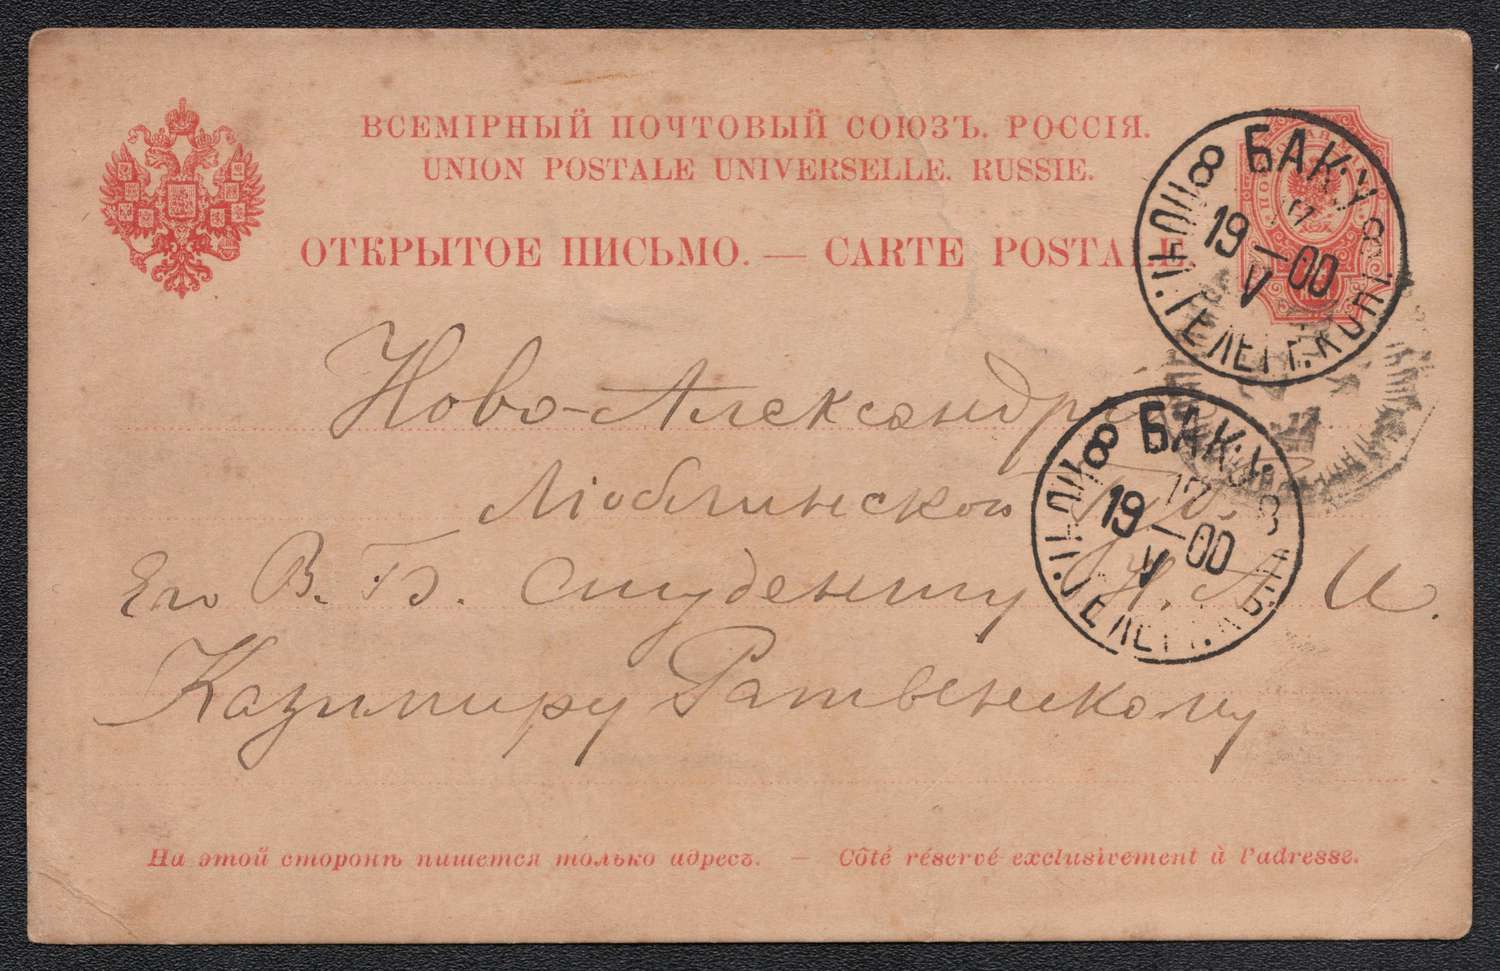 ВСЕМІРНЫЙ ПОЧТОВЫЙ СОЮЗЪ. РОССІЯ.
UNION POSTALE UNIVERSELLE. RUSSIE.
ОТКРЫТОЕ ПИСЬМО. — CARTE POSTALE.
8 БАКУ 8
19 — 00
V
ТЕЛЕГР. КОНТ
Ново-Александрі
Люблинской Губ.
8 БАКУ 8
19 — 00
V
Его В. Б. Студенту Н. А. И.
Казимиру Ратвенскому
На этой сторонѣ пишется только адресъ. — Côté réservé exclusivement à l'adresse.